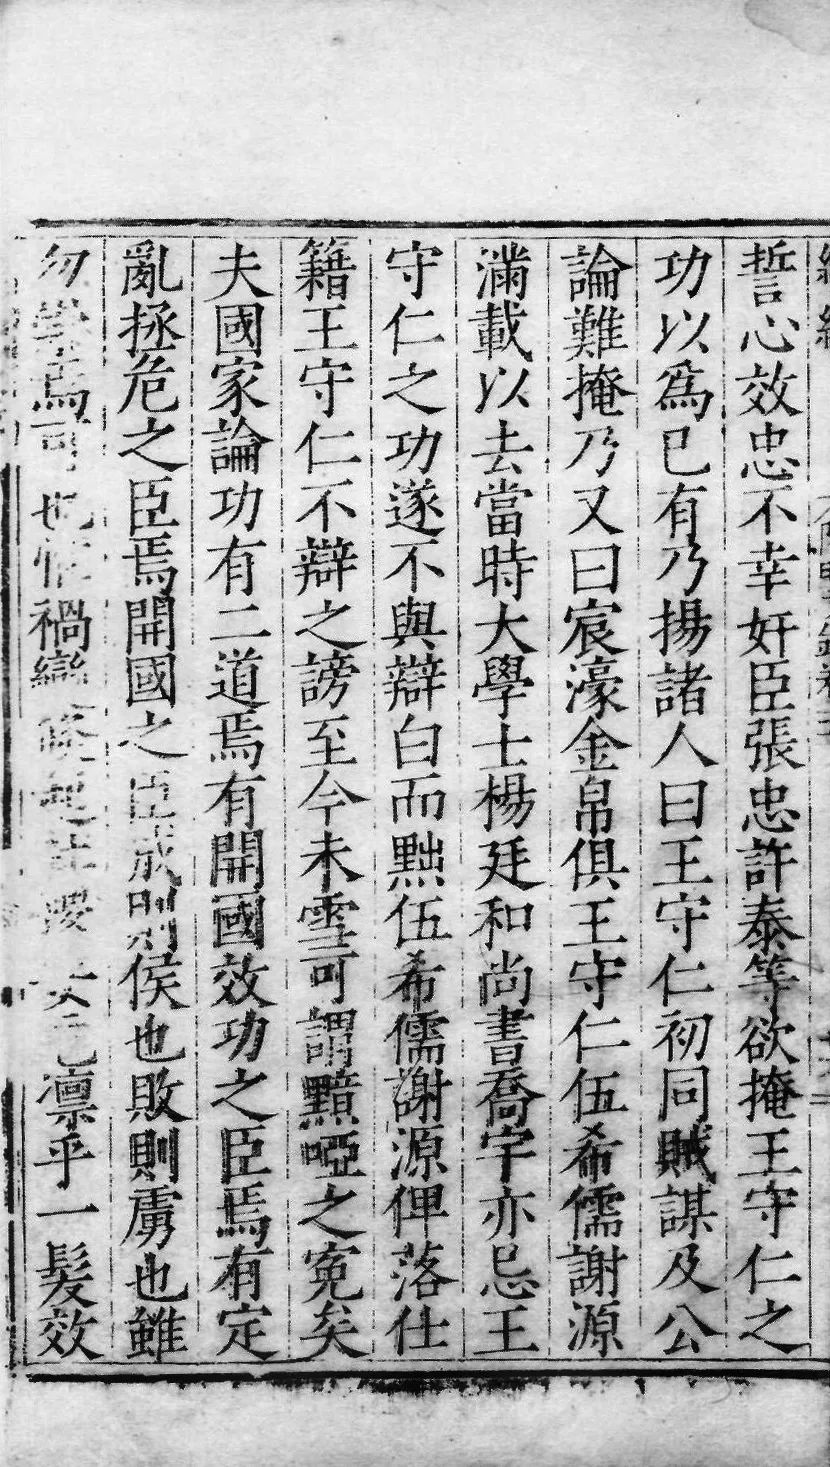 誓心效忠不幸奸臣張忠許泰等欲掩王守仁之
功以爲已有乃揚諸人曰王守仁初同賊謀及公
論難掩乃又曰宸濠金帛俱王守仁伍希儒謝源
滿載以去當時大學士楊廷和尚書喬宇亦忌王
守仁之功遂不與辯白而黜伍希儒謝源俾落仕
籍王守仁不辯之謗至今未雪可謂黯啞之寃矣
夫國家論功有二道焉有開國效功之臣焉有定
亂拯危之臣焉開國之臣成則侯也敗則虜也雖
勿也禍變凛乎一髮效